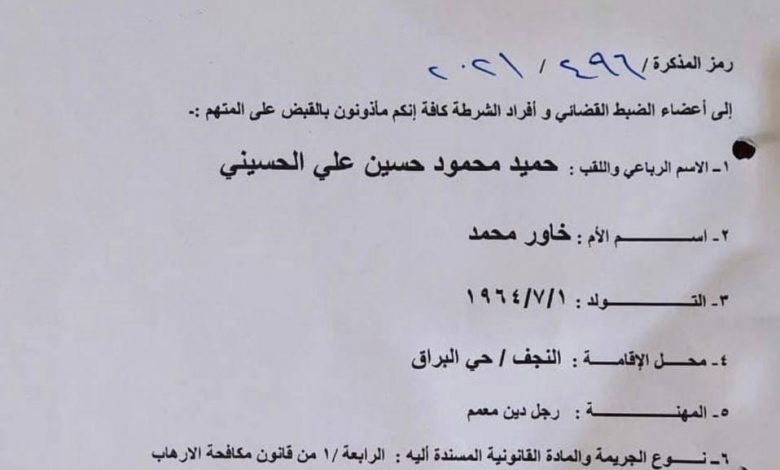 رمز المذكرة / ٤٩٦ / ٢٠٢١
إلى أعضاء الضبط القضائي و أفراد الشرطة كافة إنكم مأذونون بالقبض على المتهم :-
١- الاسم الرباعي واللقب : حميد محمود حسين علي الحسيني
٢- اسـم الأم : خاور محمد
٣- التـولد : ١٩٦٤/٧/١
٤- محـل الإقامـة : النجف / حي البراق
٥- المهنـة : رجل دين معمم
٦- نـوع الجريمة والمادة القانونية المسندة أليه : الرابعة /١ من قانون مكافحة الارهاب